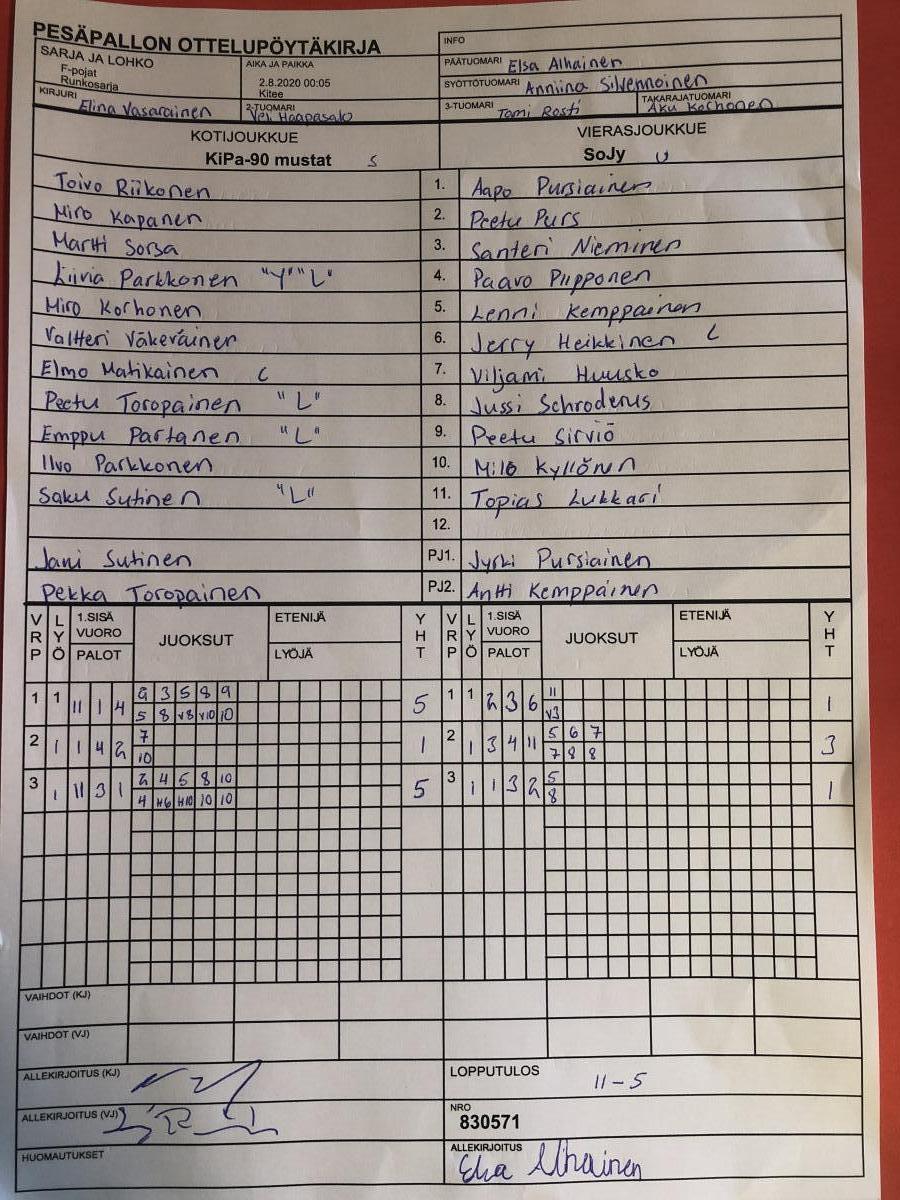 PESÄPALLON OTTELUPÖYTÄKIRJA
SARJA JA LOHKO
F-pojat
Runkosarja
AIKA JA PAIKKA
2.8.2020 00:05
Kitee
INFO
PÄÄTUOMARI Elsa Alhainen
SYÖTTÖTUOMARI Anniina Silvennoinen
KIRJURI Elina Vasarainen
2-TUOMARI Veli Haapasalo
3-TUOMARI Tomi Rosti
TAKARAJATUOMARI Aku Karhonen
KOTIJOUKKUE VIERASJOUKKUE
KiPa-90 mustat S SoJy U
Toivo Riikonen 1. Aapo Pursiainen
Miro Kapanen 2. Peetu Purs
Martti Sorsa 3. Santeri Nieminen
Liivia Parkkonen "Y" "L" 4. Paavo Piipponen
Miro Korhonen 5. Lenni Kemppainen
Valtteri Väkeväinen 6. Jerry Heikkinen C
Elmo Matikainen C 7. Viljami Huusko
Peetu Toropainen "L" 8. Jussi Schroderus
Emppu Partanen "L" 9. Peetu Sirviö
Ilvo Parkkonen 10. Milo Kyllönen
Saku Sutinen "L" 11. Topias Lukkari
12.
Jani Sutinen PJ1. Jyrki Pursiainen
Pekka Toropainen PJ2. Antti Kemppainen
VRP LYÖ 1.SISÄ VUORO PALOT JUOKSUT ETENIJÄ LYÖJÄ YHT VRP LYÖ 1.SISÄ VUORO PALOT JUOKSUT ETENIJÄ LYÖJÄ YHT
1 1 11 1 4 2 3 5 8 9 5 1 1 2 3 6 11 1
5 8 v8 v10 10 v3
2 1 1 4 2 7 1 2 1 3 4 11 5 6 7 3
10 7 8 8
3 1 11 3 1 2 4 5 8 10 5 3 1 1 3 2 5 1
4 H6 H10 10 10 8
VAIHDOT (KJ)
VAIHDOT (VJ)
ALLEKIRJOITUS (KJ)
LOPPUTULOS
11-5
ALLEKIRJOITUS (VJ)
NRO
830571
HUOMAUTUKSET
ALLEKIRJOITUS
Elsa Alhainen